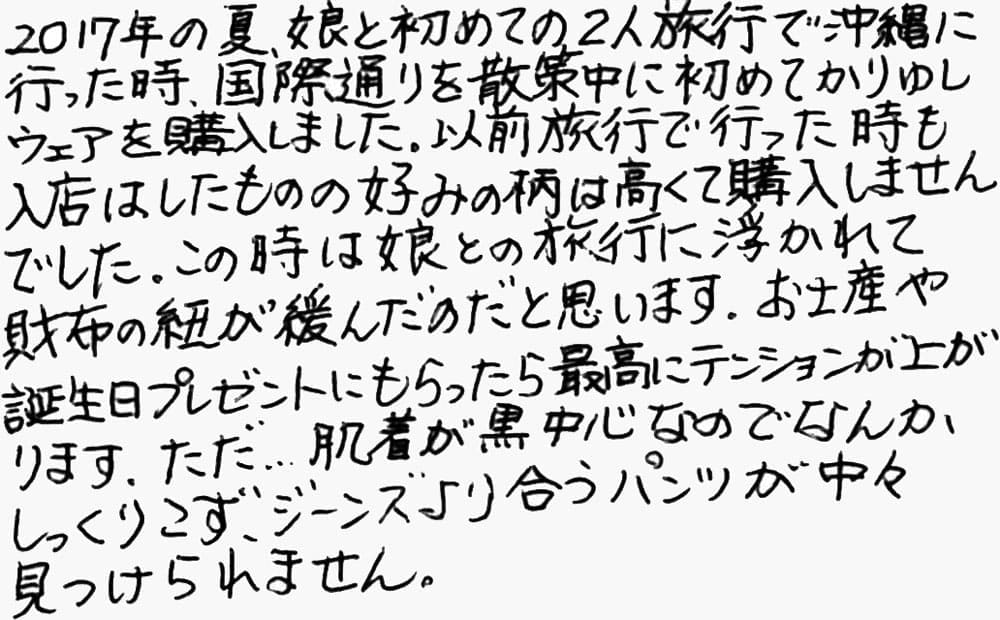 2017年の夏、娘と初めての2人旅行で沖縄に
行った時、国際通りを散策中に初めてかりゆし
ウェアを購入しました。以前旅行で行った時も
入店はしたものの好みの柄は高くて購入しません
でした。この時は娘との旅行に浮かれて
財布の紐が緩んだのだと思います。お土産や
誕生日プレゼントにもらったら最高にテンションが上が
ります。ただ…肌着が黒中心なのでなんか、
しっくりこず、ジーンズより合うパンツが中々
見つけられません。